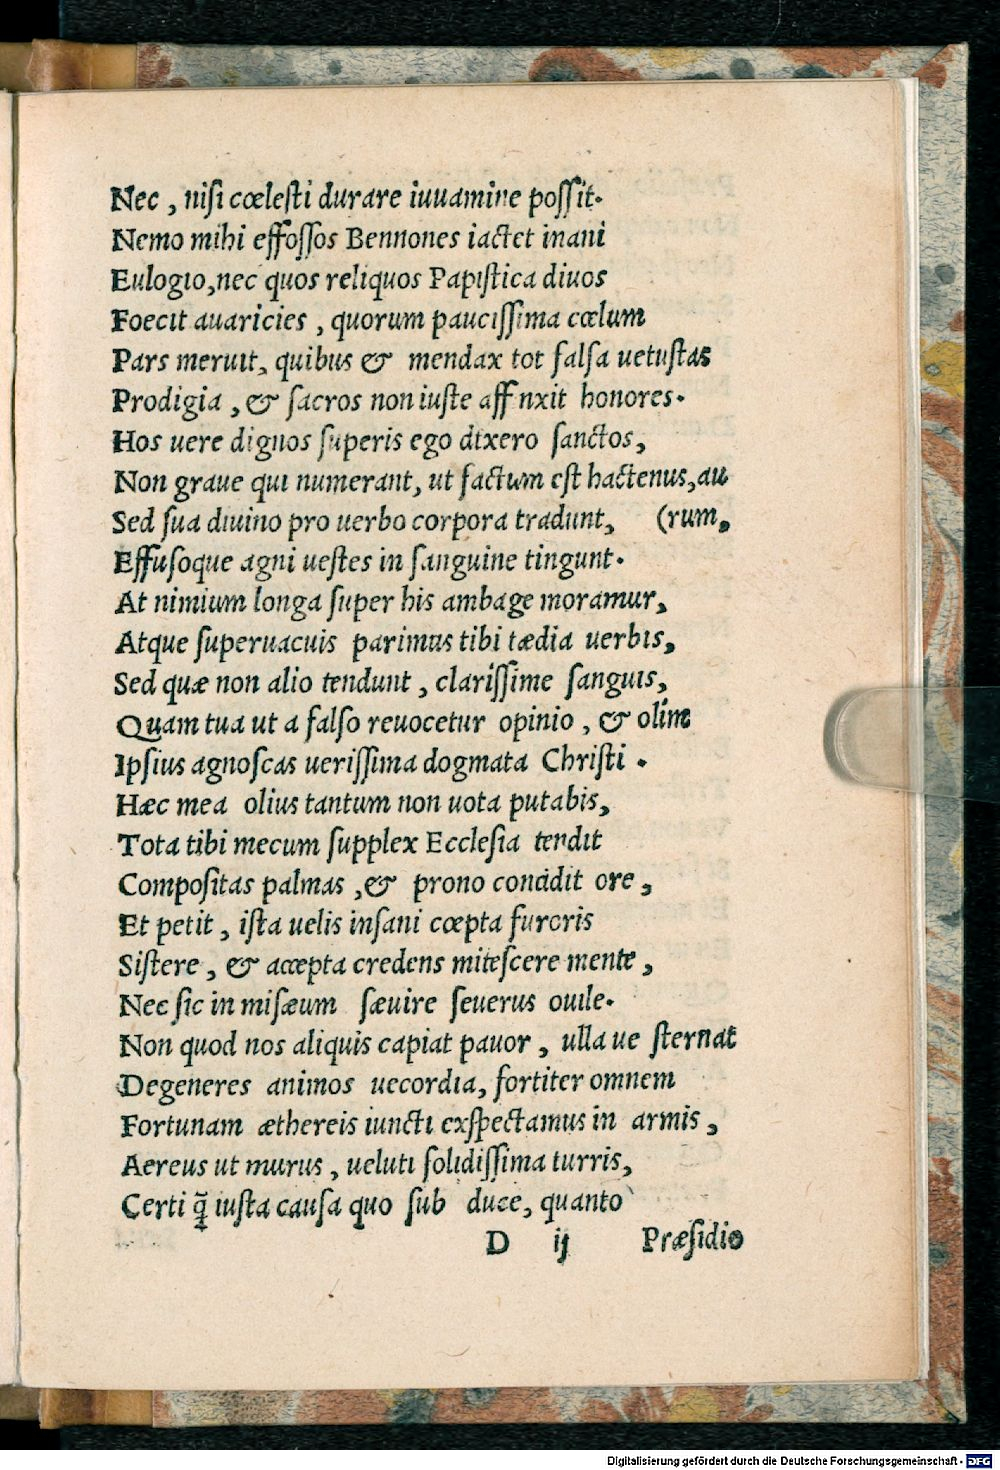 Nec, niſi cœleſti durare iuuamine poſſit.
Nemo mihi effoſſos Bennones iactet inani
Eulogio, nec quos reliquos Papiſtica diuos
Foecit auaricies, quorum pauciſſima cœlum
Pars meruit, quibus & mendax tot falſa uetuſtas
Prodigia, & ſacros non iuſte affinxit honores.
Hos uere dignos ſuperis ego dixero ſanctos,
Non graue qui numerant, ut factum eſt hactenus, au
Sed ſua diuino pro uerbo corpora tradunt, (rum,
Effuſoque agni ueſtes in ſanguine tingunt.
At nimium longa ſuper his ambage moramur,
Atque ſuperuacuis parimus tibi tædia uerbis,
Sed quæ non alio tendunt, clariſſime ſanguis,
Quam tua ut a falſo reuocetur opinio, & olim
Ipſius agnoſcas ueriſſima dogmata Chriſti.
Hæc mea olius tantum non uota putabis,
Tota tibi mecum ſupplex Eccleſia tendit
Compoſitas palmas, & prono concidit ore,
Et petit, iſta uelis inſani cœpta furoris
Siſtere, & accepta credens miteſcere mente,
Nec ſic in miſæum ſæuire ſeuerus ouile.
Non quod nos aliquis capiat pauor, ulla ue ſternat
Degeneres animos uecordia, fortiter omnem
Fortunam æthereis iuncti exſpectamus in armis,
Aereus ut murus, ueluti ſolidiſſima turris,
Certi q̃ iuſta cauſa quo ſub duce, quanto
D ij Præſidio
Digitalisierung gefördert durch die Deutsche Forschungsgemeinschaft - DFG